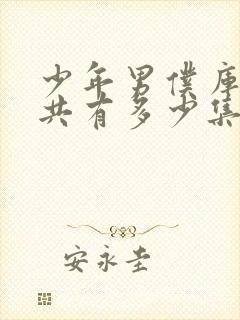 少年男僕庫
共有多少集
安永圭